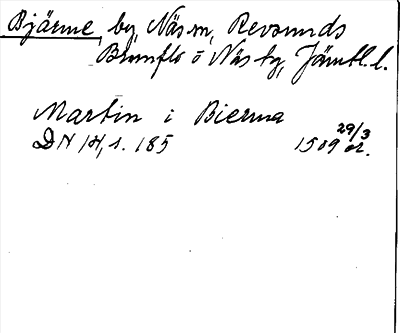 Bjärme, by, Näs sn, Revsunds
Brunflo o Näs tg, Jämtl. l.
Martin i Bierma
DN 14, s. 185 1509 29/3 or.